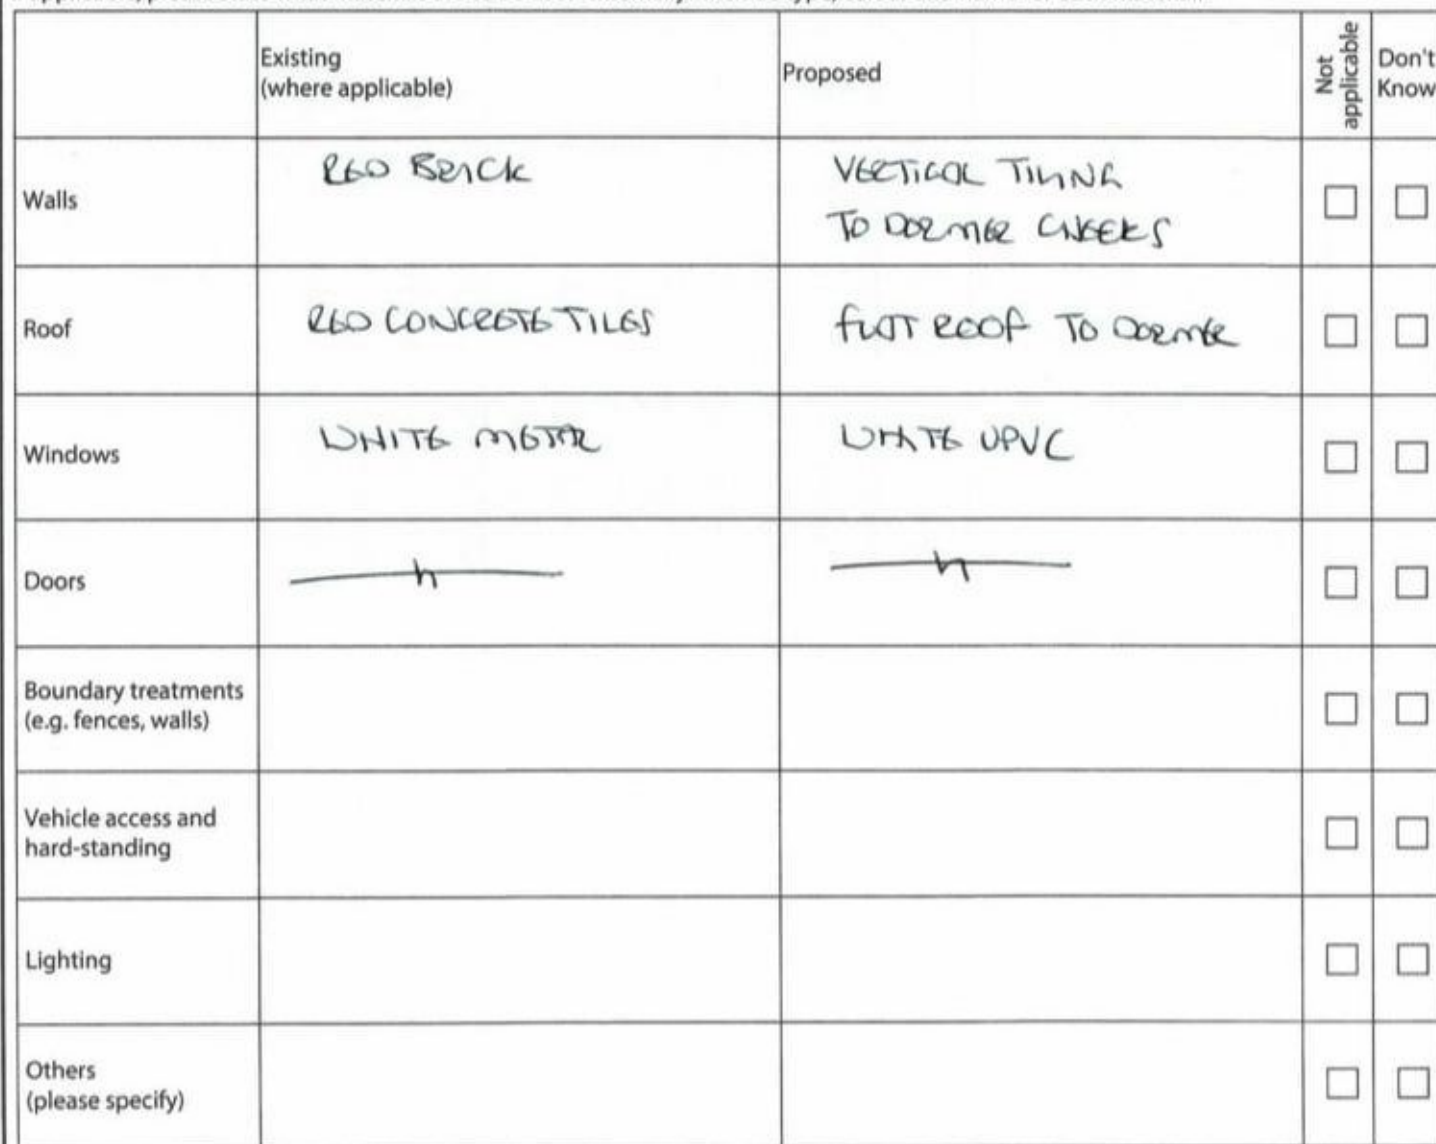 Existing
(where applicable)
Proposed
Not
applicable
Don't
Know
Walls
RED BRICK
VERTICAL TILING
TO DORMER CHEEKS
Roof
RED CONCRETE TILES
FLAT ROOF TO DORMER
Windows
WHITE METAL
WHITE UPVC
Doors
Boundary treatments
(e.g. fences, walls)
Vehicle access and
hard-standing
Lighting
Others
(please specify)